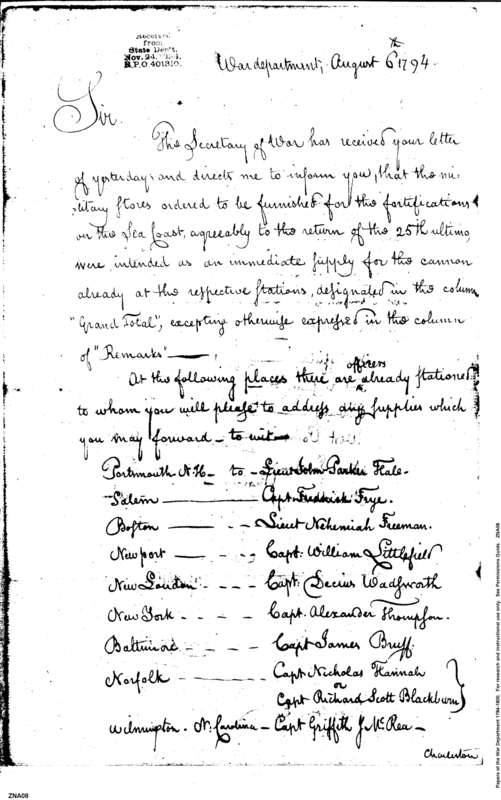 Received
from
State Dep't.
Nov. 24,
R.P.O 401310.
War department, August 6th 1794.
Sir.
The Secretary of War has received your letter
of yesterday and directs me to inform you, that the mi-
litary stores ordered to be furnished for the fortifications
on the Sea Coast, agreeably to the return of the 25th ultimo,
were intended as an immediate supply for the cannon
already at the respective stations, designated in the column
"Grand Total", excepting otherwise expressed in the column
of "Remarks" ——,
At the following places there are officers already stationed
to whom you will please to address any supplies which
you may forward – to wit –
Portsmouth N.H – to – Lieut John Parker Hale –
Salem ——— Capt. Fredrick Frye.
Boston —— - - Lieut Nehemiah Freeman.
Newport —— - - Capt. William Littlefield
New London - - - Capt. Decius Wadsworth
New York - - - - Capt. Alexander Thompson.
Baltimore - - - Capt James Bruff.
Norfolk ——— Capt Nicholas Hannah
or
Capt Richard Scott Blackburn
Wilmington. N. Carolina – Capt Griffith J McRea –
Charleston,
ZNA08
Papers of the War Department 1784-1800. For research and instructional use only. See Permissions Guide. ZNA08